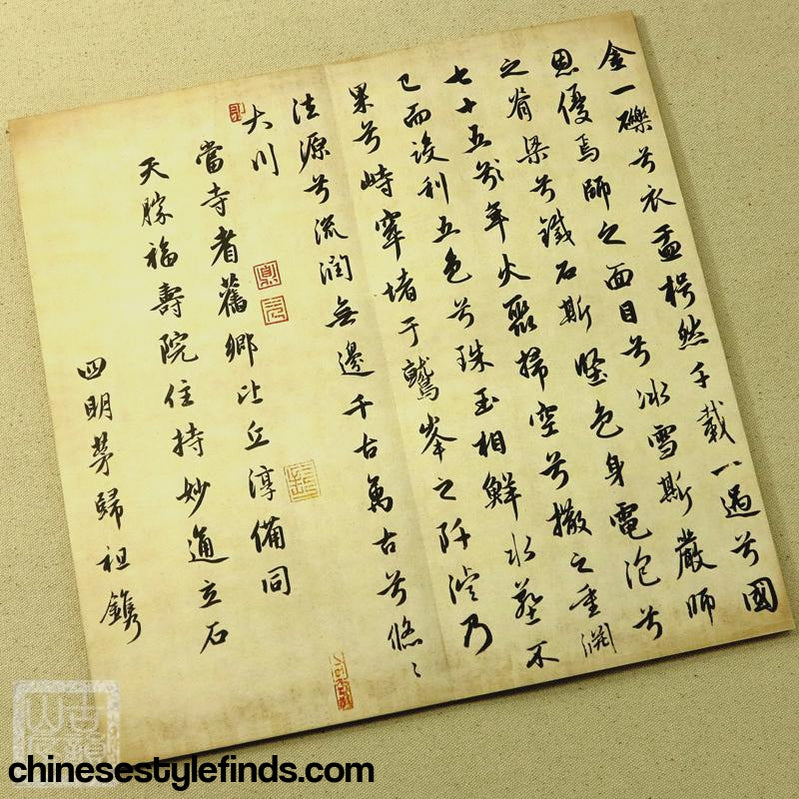 金一礫兮衣盂枵然千載一遇兮國
恩優焉師之面目兮冰雪斯嚴師
之脊梁兮鐵石斯堅色身電泡兮
七十五年火聚掃空兮撒之重淵
已而設利五色兮珠玉相鮮水塟不
果兮峙窣堵于鷲峯之阡澤乃
法源兮流潤無邊千古萬古兮悠〻
大川
當寺耆舊鄉比丘淳備同
天勝福壽院住持妙道立石
四明茅歸祖鐫
chinesestylefinds.com